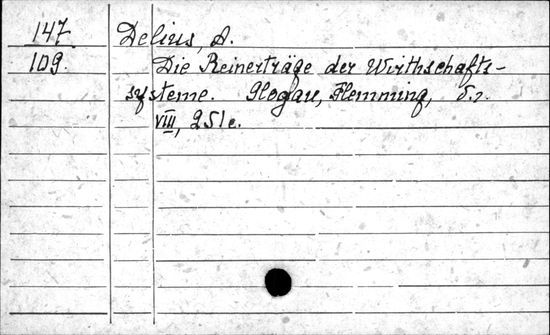 147 Delius, A.
109. Die Reinerträge der Wirthschafts-
systeme. Glogau, Flemming, s.a.
VIII, 251 c.